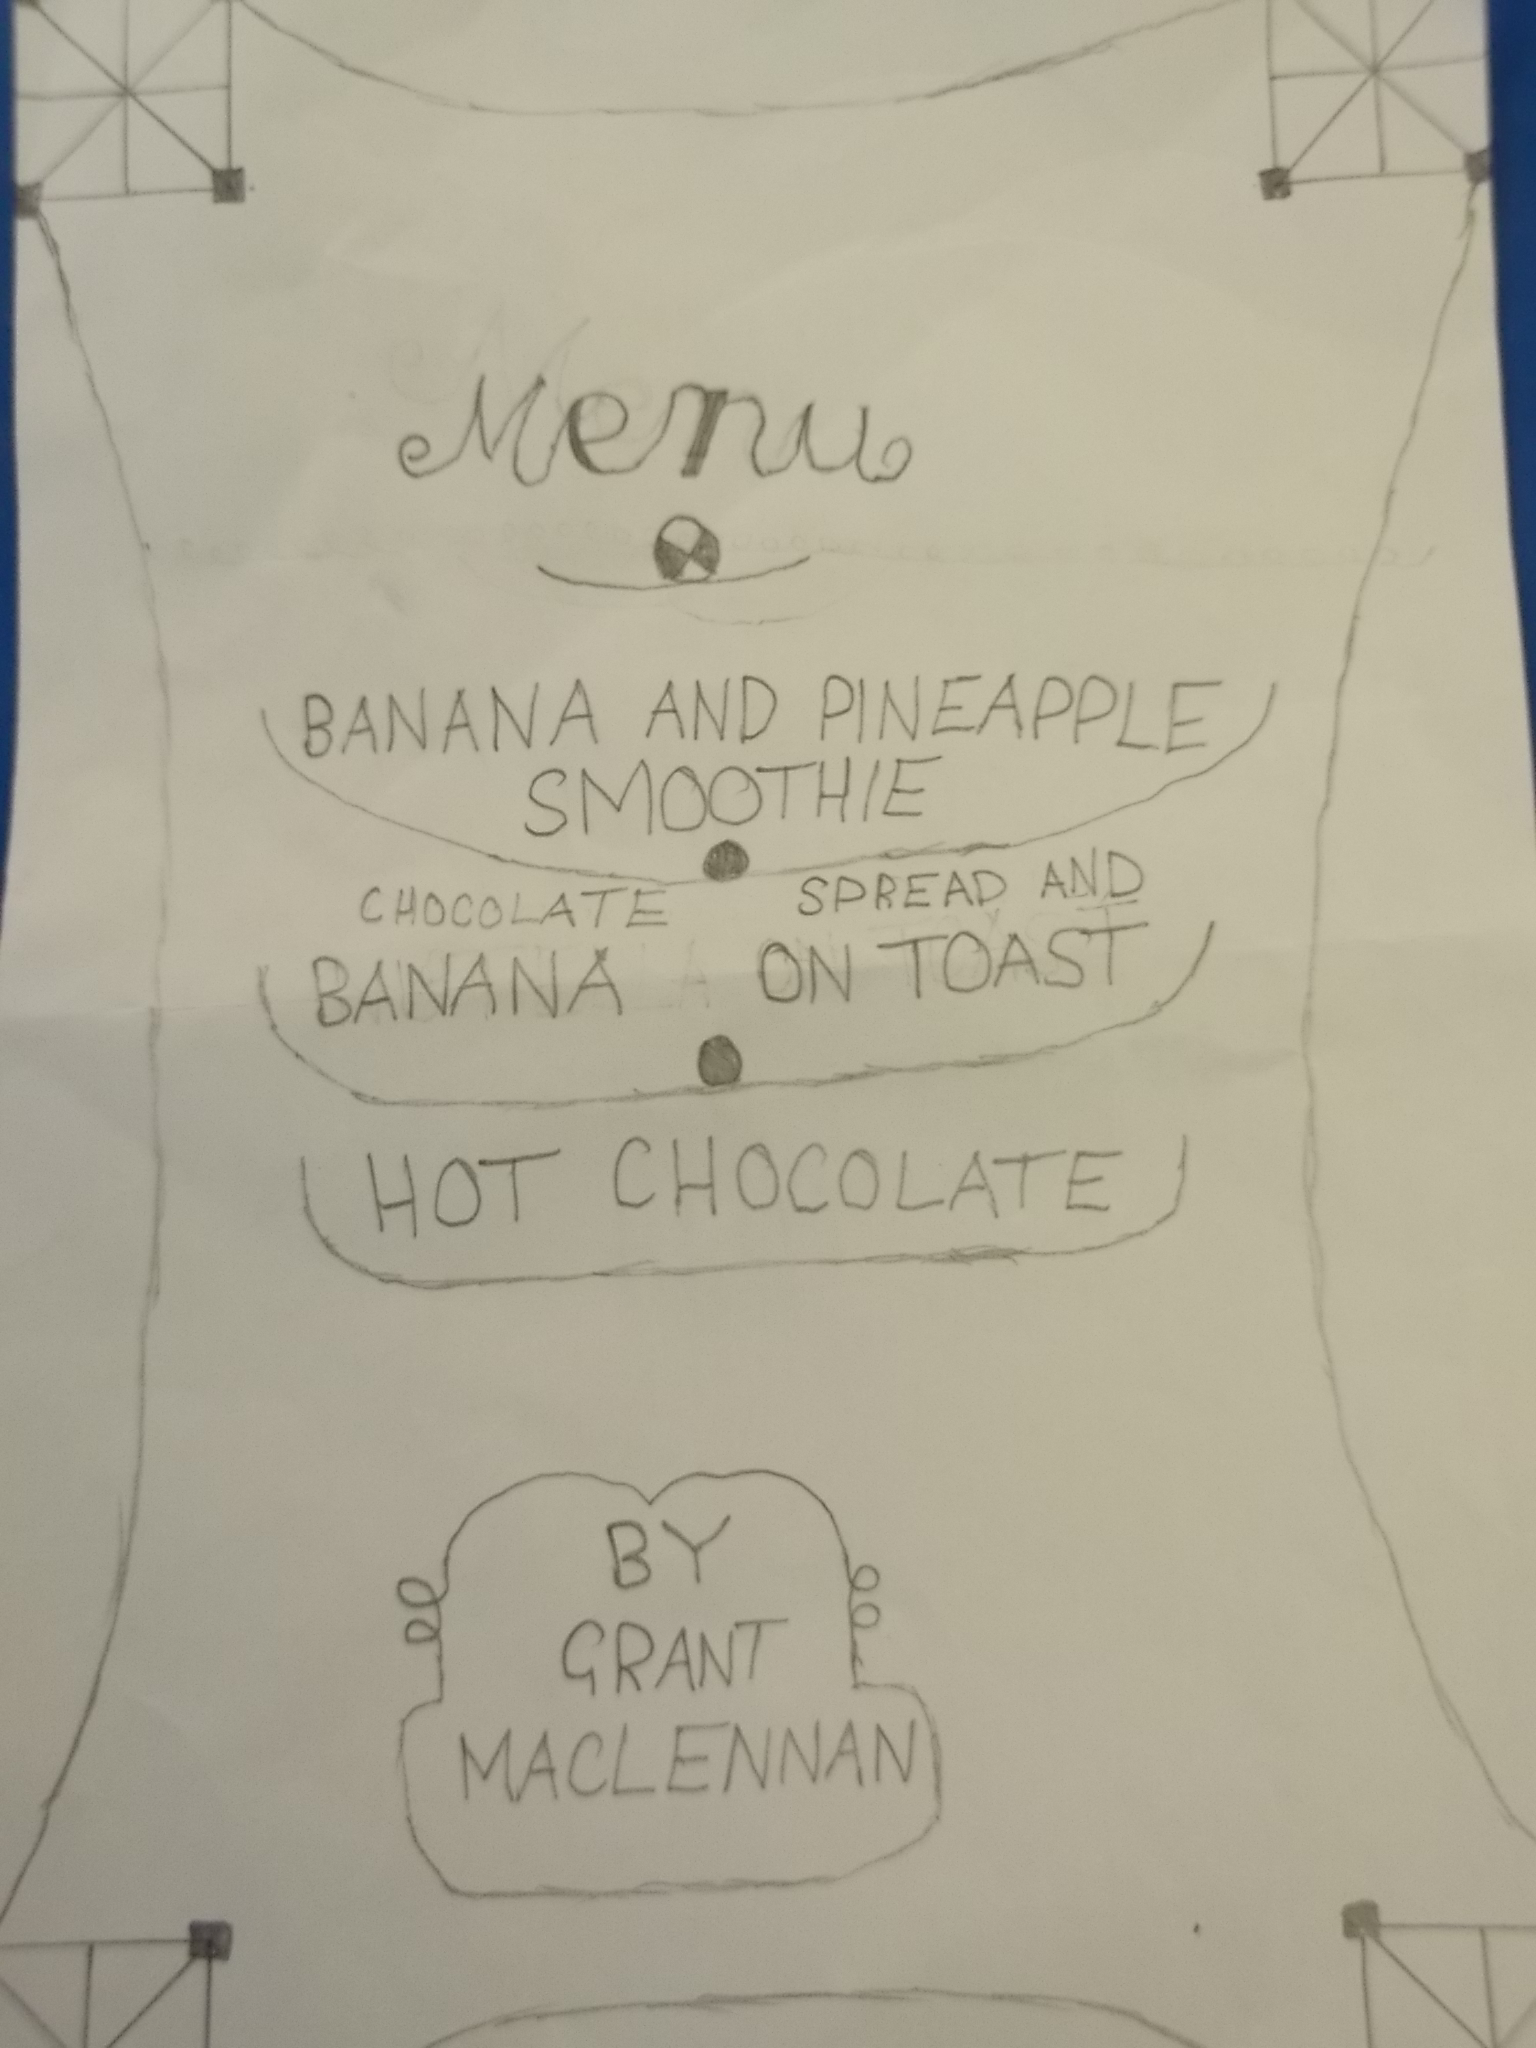 Menu
BANANA AND PINEAPPLE
SMOOTHIE
CHOCOLATE SPREAD AND
BANANA ON TOAST
HOT CHOCOLATE
BY
GRANT
MACLENNAN